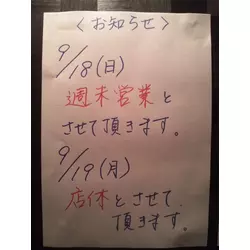 〈お知らせ〉
9/18(日)
週末営業と
させて頂きます。
9/19(月)
店休とさせて
頂きます。